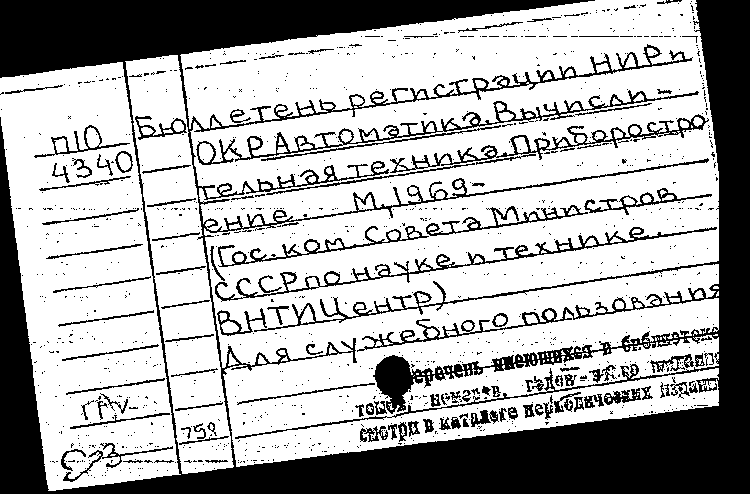 П10
4340
Бюллетень регистрации НИР и
ОКР Автоматика. Вычисли-
тельная техника. Приборостро
ение. М., 1969-
(Гос. ком. Совета Министров
СССР по науке и технике.
ВНТИЦентр)
Для служебного пользования
еречень имеющихся в библиотеке
томов, номеров,
смотри в каталоге периодических издани
758